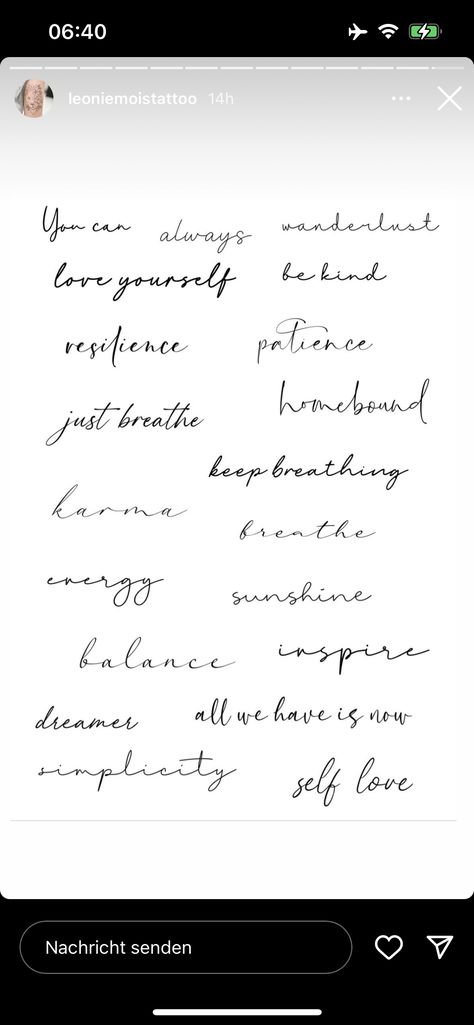 06:40
leoniemoistattoo 14h
You can
always
wanderlust
love yourself
be kind
resilience
patience
just breathe
homebound
keep breathing
karma
breathe
energy
sunshine
balance
inspire
dreamer
all we have is now
simplicity
self love
Nachricht senden